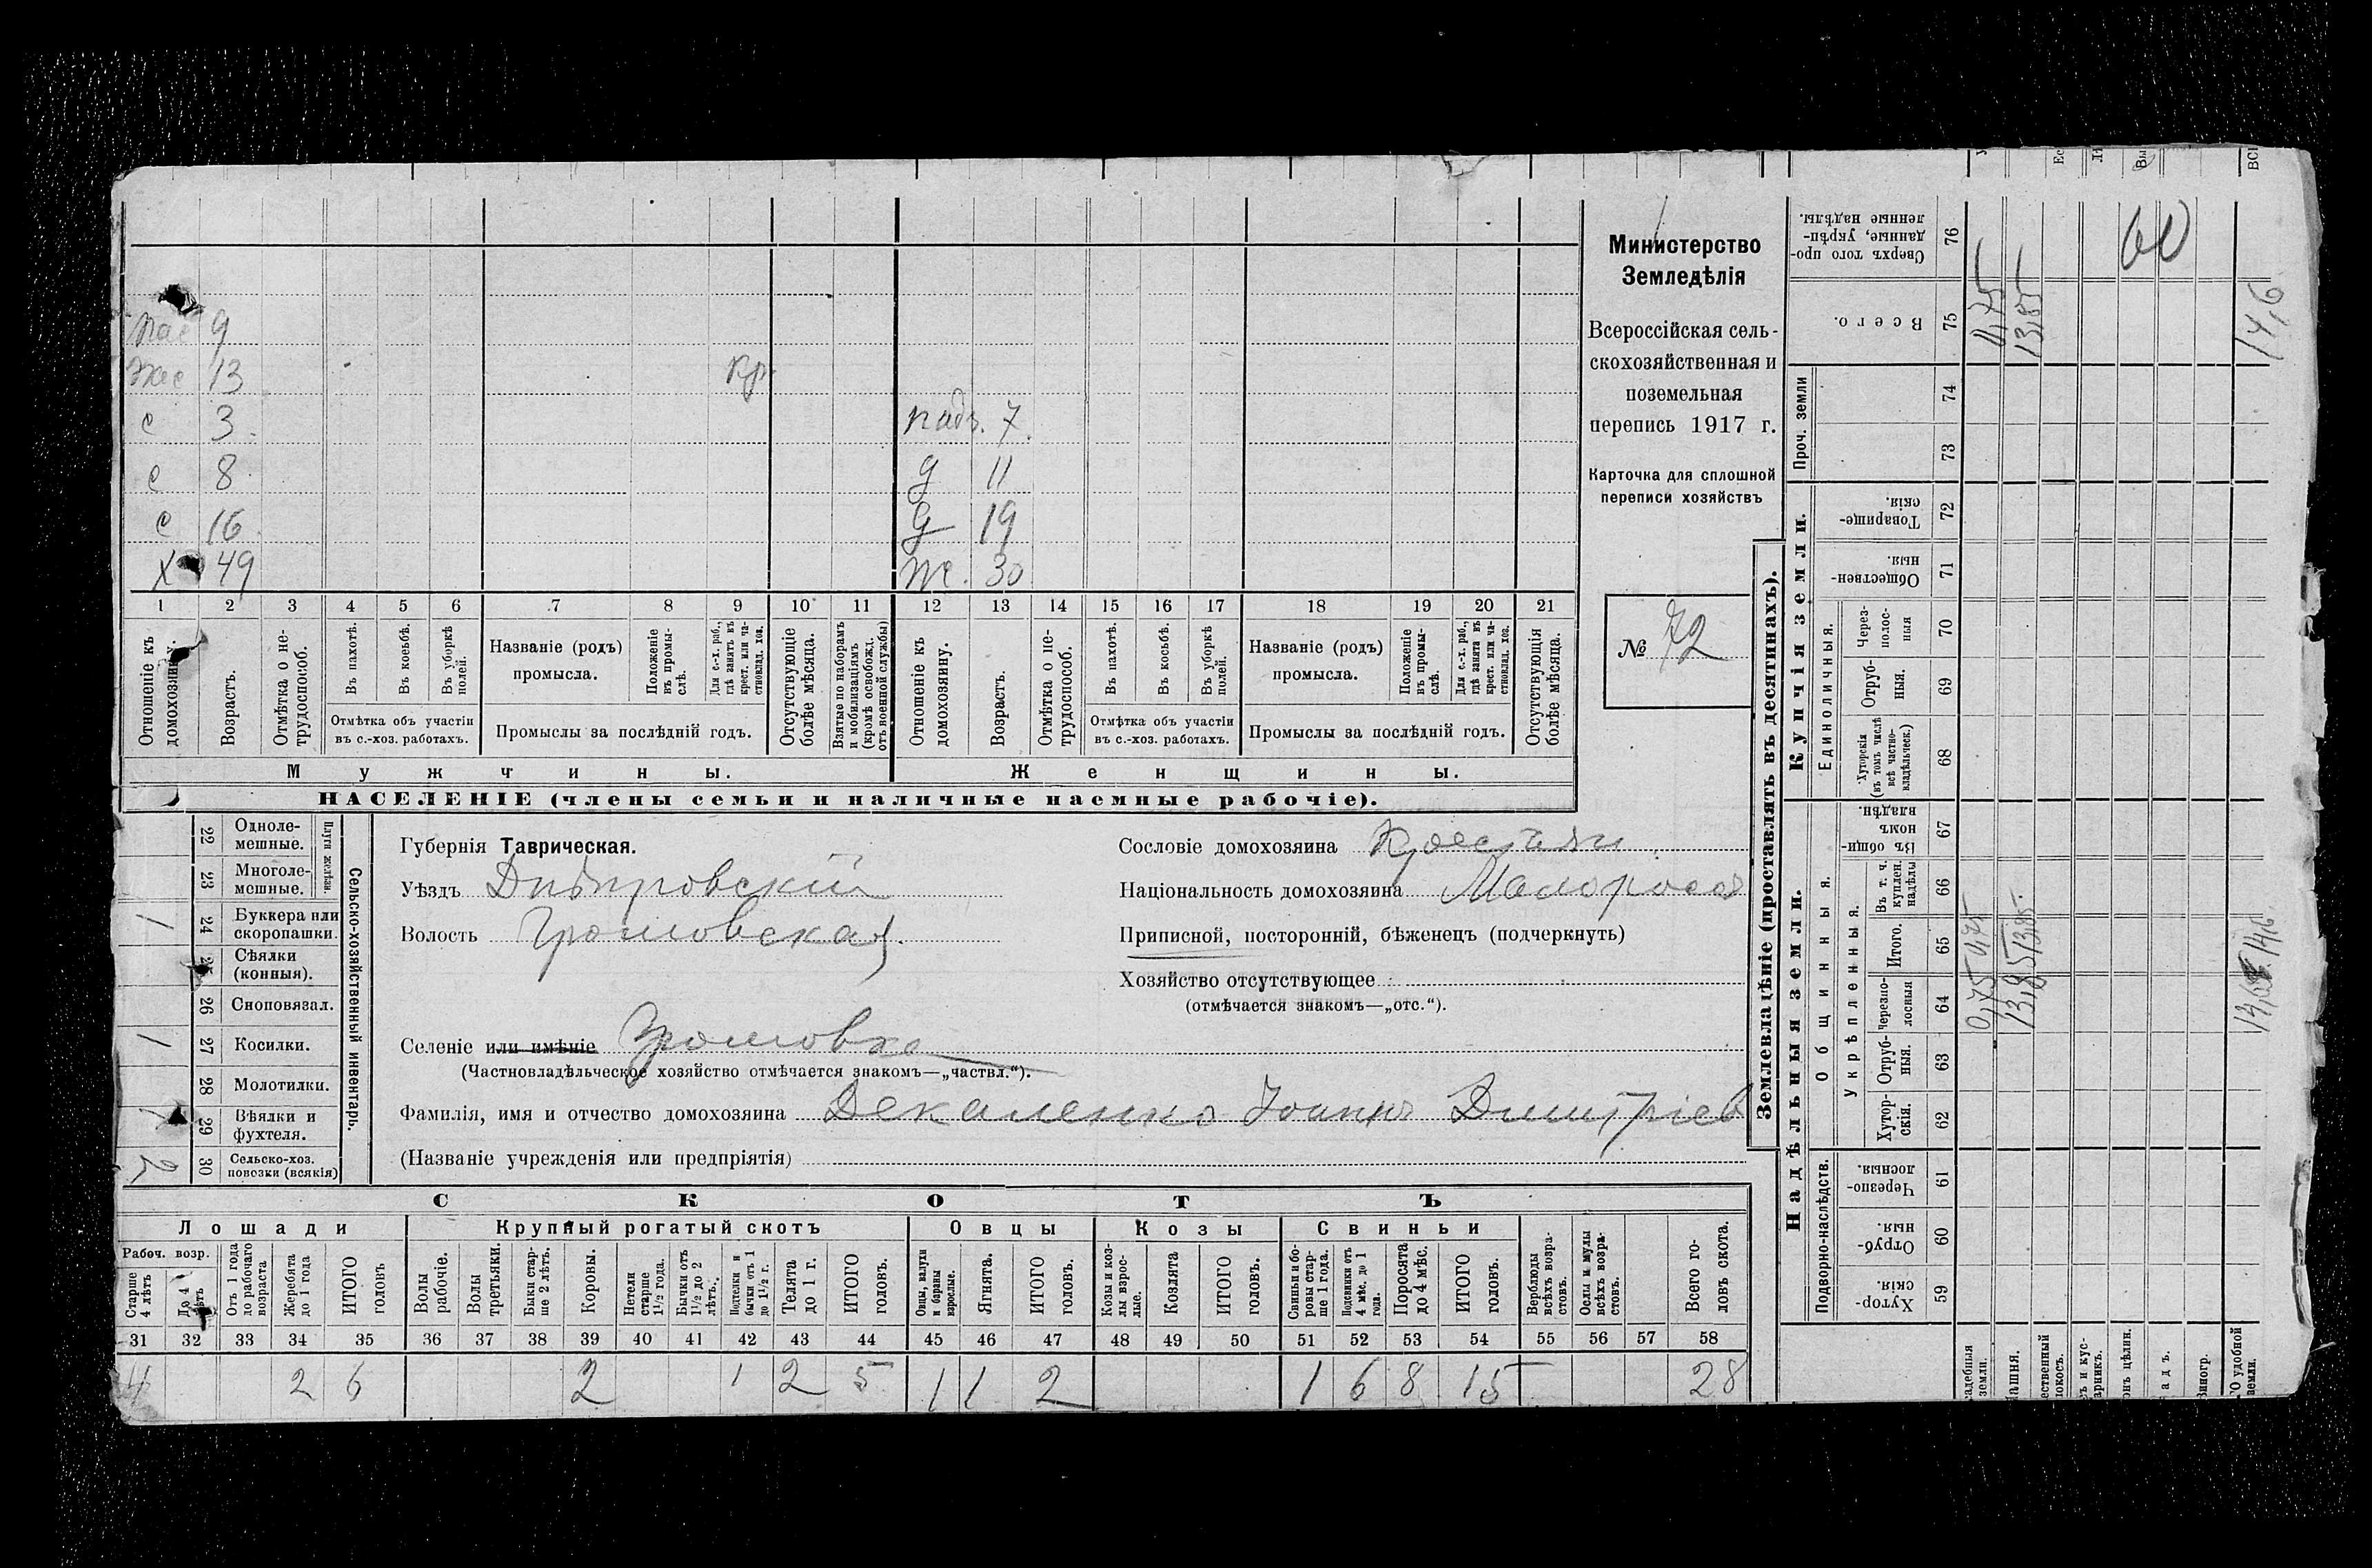 пас 9
Жее 13 кр.
с 3. пад. 7.
с 8 д 11
с 16. д 19
Х 49 же. 30
1 2 3 4 5 6 7 8 9 10 11 12 13 14 15 16 17 18 19 20 21
Отношеніе къ домохозяину.
Возрастъ.
Отмѣтка о нетрудоспособ.
Въ пахотѣ.
Въ косьбѣ.
Въ уборкѣ полей.
Отмѣтка объ участіи
въ с.-хоз. работахъ.
Названіе (родъ)
промысла.
Положеніе въ промыслѣ.
Для с.-х. раб., гдѣ занятъ въ крест. или частновлад. хоз.
Промыслы за послѣдній годъ.
Отсутствующіе болѣе мѣсяца.
Взятые по наборамъ и мобилизаціямъ (кромѣ освобожд. отъ военной службы)
Отношеніе къ домохозяину.
Возрастъ.
Отмѣтка о нетрудоспособ.
Въ пахотѣ.
Въ косьбѣ.
Въ уборкѣ полей.
Отмѣтка объ участіи
въ с.-хоз. работахъ.
Названіе (родъ)
промысла.
Положеніе въ промыслѣ.
Для с.-х. раб., гдѣ занята въ крест. или частновлад. хоз.
Промыслы за послѣдній годъ.
Отсутствующія болѣе мѣсяца.
Мужчины. Женщины.
НАСЕЛЕНІЕ (члены семьи и наличные наемные рабочіе).
Министерство
Земледѣлія
Всероссійская сель-
скохозяйственная и
поземельная
перепись 1917 г.
Карточка для сплошной
переписи хозяйствъ
№ 72
Сельско-хозяйственный инвентарь.
Плуги желѣзн.
22 Одноле-
мешные.
23 Многоле-
мешные.
1 24 Буккера или
скоропашки.
25 Сѣялки
(конныя).
26 Сноповязал.
1 27 Косилки.
28 Молотилки.
1 29 Вѣялки и
фухтеля.
2 30 Сельско-хоз.
повозки (всякія)
Губернія Таврическая.
Уѣздъ Днѣпровскій
Волость Громовская.
Селеніе или имѣніе Громовка
(Частновладѣльческое хозяйство отмѣчается знакомъ—„частвл.“).
Фамилія, имя и отчество домохозяина Декаленко Іоаннъ Дмитріев
(Названіе учрежденія или предпріятія)
Сословіе домохозяина Крестьян.
Національность домохозяина Малоросс
Приписной, посторонній, бѣженецъ (подчеркнуть)
Хозяйство отсутствующее
(отмѣчается знакомъ—„отс.“).
СКОТЪ
Лошади Крупный рогатый скотъ Овцы Козы Свиньи
Рабоч. возр.
Старше 4 лѣтъ
До 4 лѣтъ
Отъ 1 года до рабочаго возраста
Жеребята до 1 года
ИТОГО головъ
Волы рабочіе.
Волы третьяки.
Быки старше 2 лѣтъ.
Коровы.
Нетели старше 1½ года.
Бычки отъ 1½ до 2 лѣтъ.
Подтелки и бычки отъ 1 до 1½ г.
Телята до 1 г.
ИТОГО головъ.
Овцы, валухи и бараны взрослые.
Ягнята.
ИТОГО головъ.
Козы и козлы взрослые.
Козлята
ИТОГО головъ.
Свиньи и боровы старше 1 года.
Подсвинки отъ 4 мѣс. до 1 года.
Поросята до 4 мѣс.
ИТОГО головъ.
Верблюды всѣхъ возрастовъ.
Ослы и мулы всѣхъ возрастовъ.
Всего головъ скота.
31 32 33 34 35 36 37 38 39 40 41 42 43 44 45 46 47 48 49 50 51 52 53 54 55 56 57 58
4 2 6 2 1 2 5 1 1 2 1 6 8 15 28
Землевладѣніе (проставлять въ десятинахъ).
Надѣльныя земли. Купчія земли. Проч. земли
Подворно-наслѣдств.
Общинныя.
Укрѣпленныя.
Единоличныя.
Хутор-
скія.
59
Отруб-
ныя.
60
Черезпо-
лосныя.
61
Хутор-
скія.
62
Отруб-
ныя.
63
Черезпо-
лосныя
64
Итого.
65
Въ т. ч. куплен. надѣлы
66
Въ общи-
номъ
владѣн.
67
Хуторскія
(въ томъ числѣ
всѣ частно-
владѣльческ.)
68
Отруб-
ныя.
69
Через-
полос-
ныя
70
Обществен-
ныя
71
Товарище-
скія.
72
73
74
Всего.
75
Сверхъ того про-
данные, укрѣп-
ленные надѣлы.
76
0,75 0,75 0,75
13,85 13,85 13,85
60
14,6 14,6